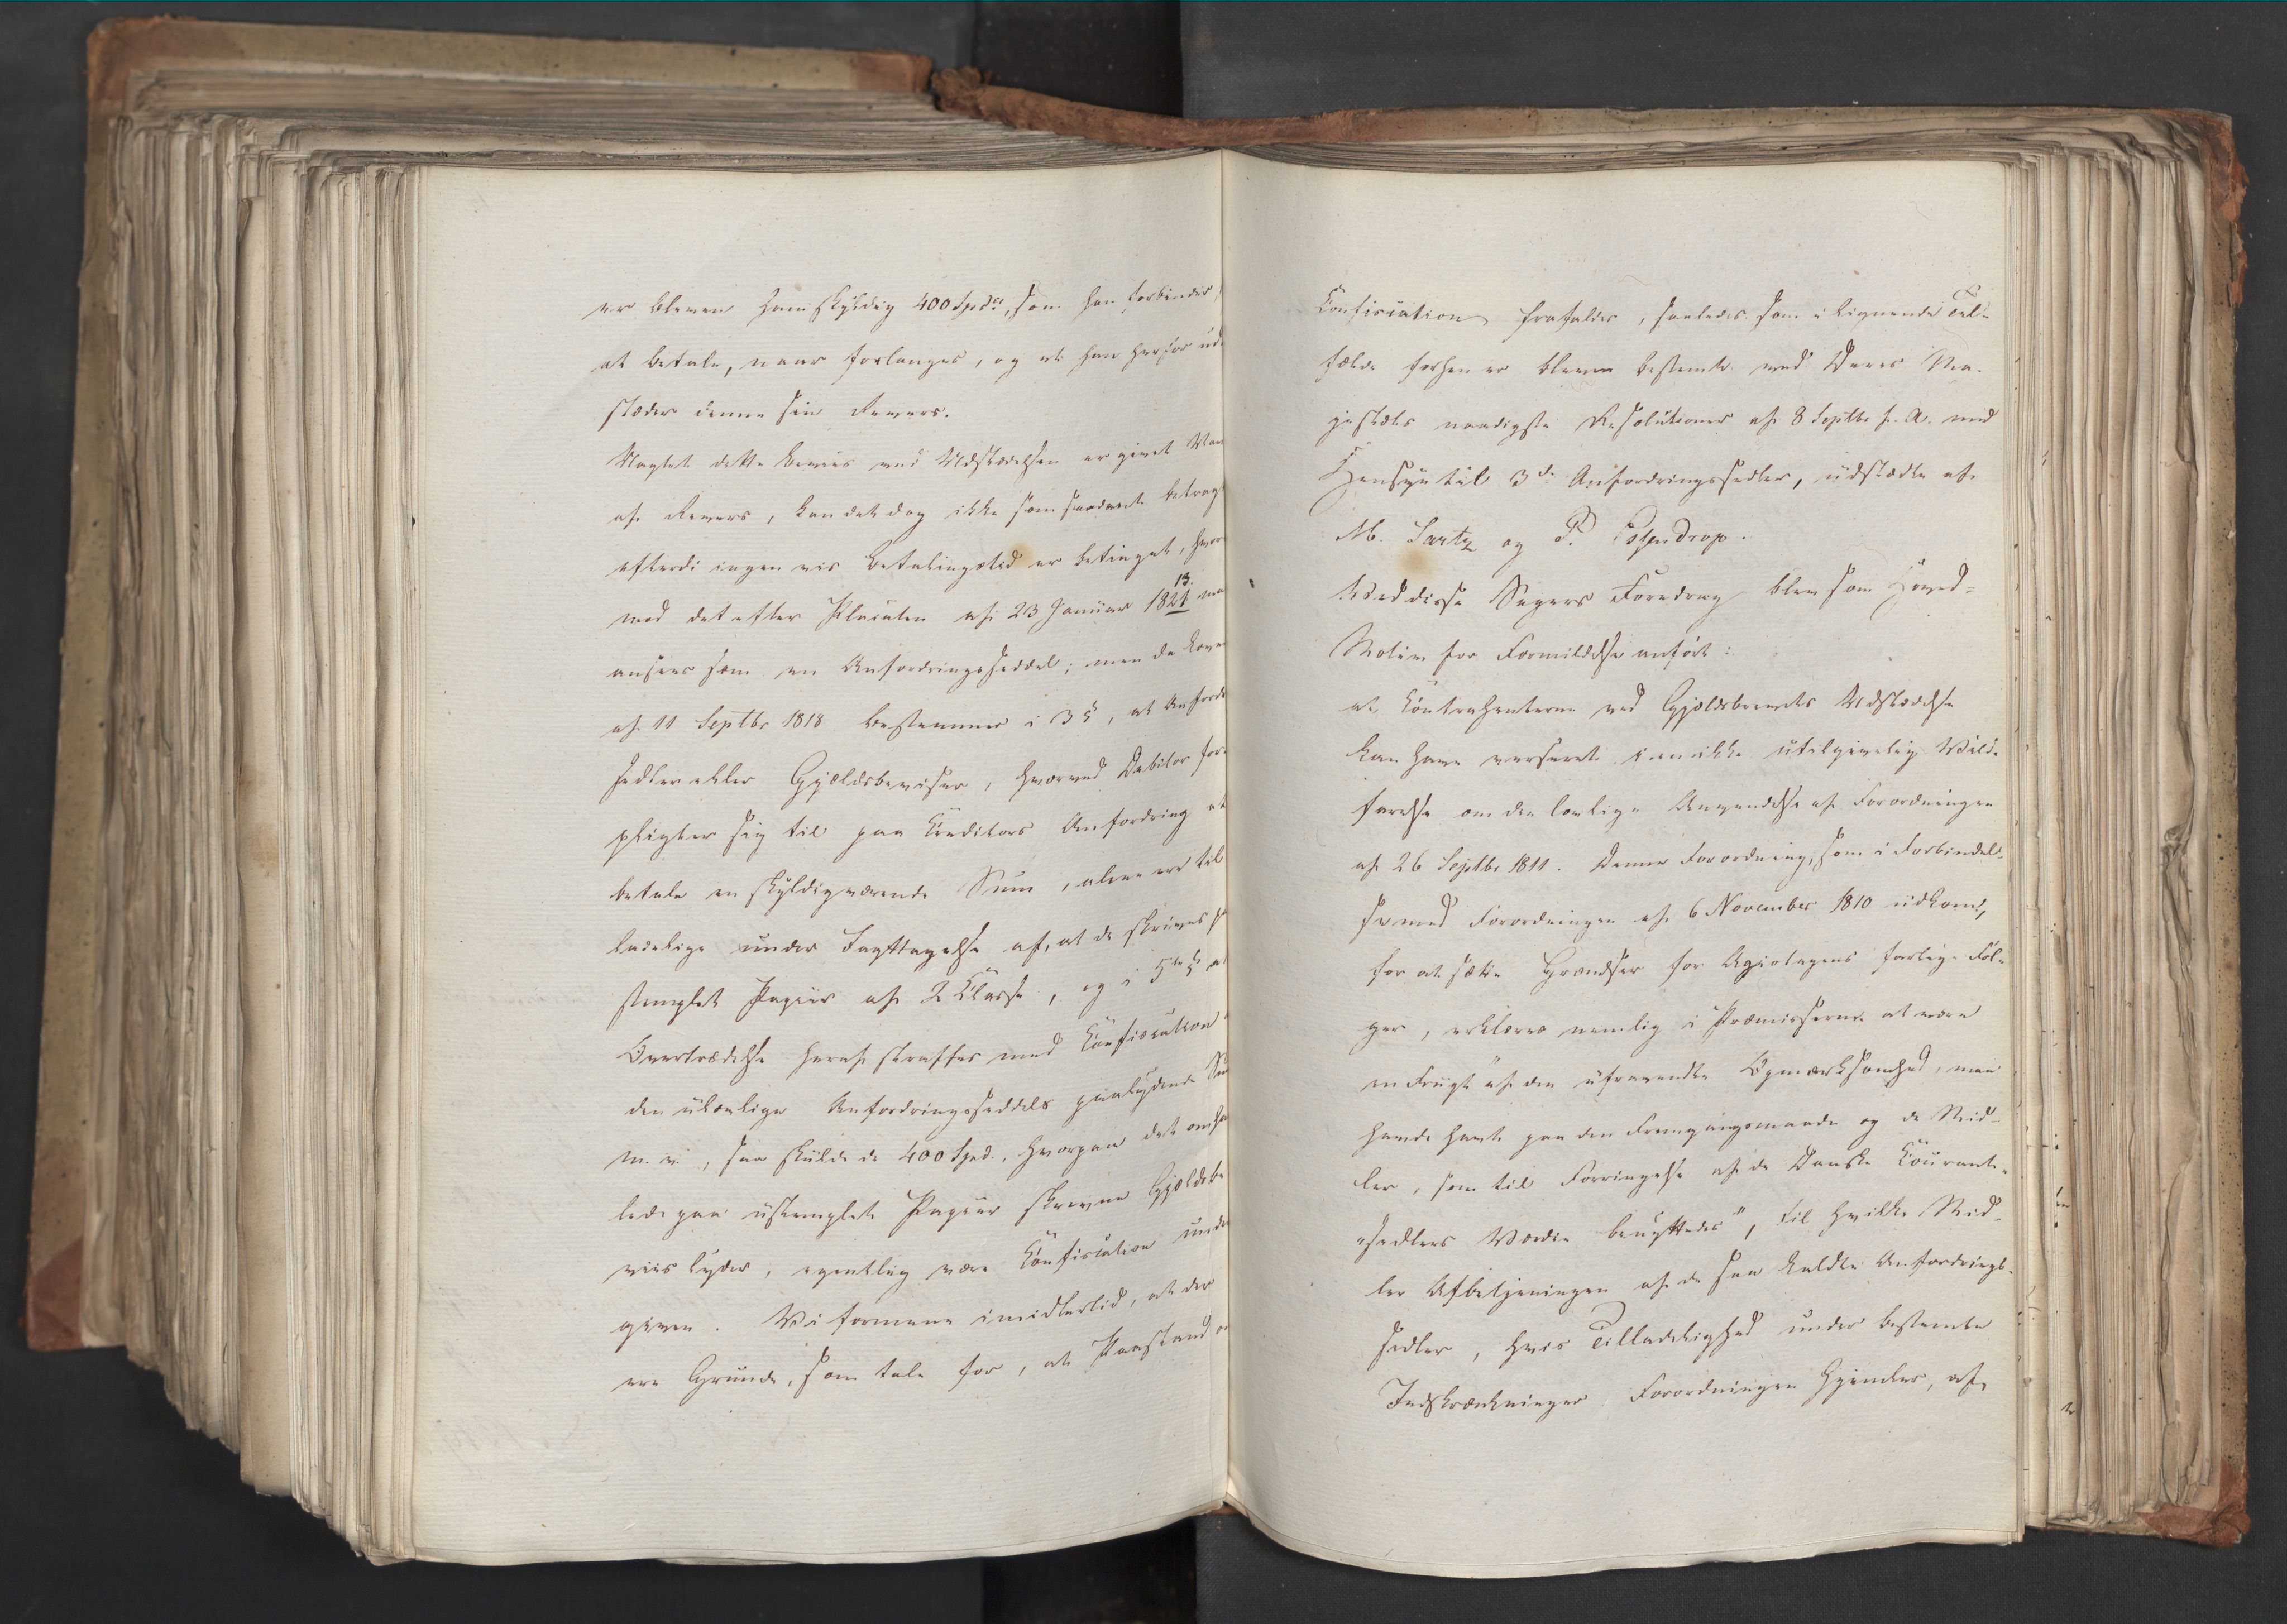 er bleven ham skyldig 400 Spdr, som han forbinder
at betale, naar forlanges, og at han herfor ud
stæder denne sin Revers.
Uagtet dette Beviis ved Udstædelsen er givet Navn
af Revers, kan det dog ikke som saadant betrag
efterdi ingen vis Betalingstid er betinget, hvor
mod det efter Placaten af 23 Januar 1821 13. maa
ansees som en Anfordringsseddel; men da Loven
af 11 Septbr 1818 bestemmer i 3 §, at Anfordr
sedler eller Gjældsbeviser, hvorved Debitor for
pligter sig til paa Creditors Anfordring at
betale en skyldigværende Sum, alene ere til
ladelige under Iagttagelse af, at de skrives paa
stemplet Papiir af 2 Classe, og i 5te § at
Overtrædelse heraf straffes med Confiscation
den ulovlige Anfordringsseddels paalydende Sum
m. v., saa skulde de 400 Spd., hvorpaa det omhan
lede paa ustemplet Papiir skrevne Gjældsbe
viis lyder, egentlig være Confiscation under
given. Vi formene imidlertid, at der
ere Grunde, som tale for, at Paastand om
Confiscation frafaldes, saaledes som i lignende Til-
fælde forhen er bleven bestemt ved Deres Ma-
jestæts naadigste Resolutioner af 8 Septbr f. A. med
Hensyn til 3de Anfordringssedler, udstædte af
M. Sartz og P. Essendrop.
Ved disse Sagers Foredrag blev som Hoved-
Motiv for Formildelse anført:
at Contrahenterne ved Gjældsbrevets Udstædelse
kan have verseret i en ikke utilgivelig Vild-
farelse om den lovlige Anvendelse af Forordningen
af 26 Septbr 1811. Denne Forordning, som i Forbindel-
se med Forordningen af 6 November 1810 udkom,
for at sætte Grændser for Agiotagens farlige Føl-
ger, erklæres nemlig i Præmisserne at være
en Frugt "af den ufravendte Opmærksomhed, man
havde havt paa den Fremgangsmaade og de Mid-
ler, som til Forringelse af de Danske Courant-
"sedlers Værdie benyttedes", til hvilke Mid-
ler Afbetjeningen af de saa kaldte Anfordrings-
sedler, hvis Tilladelighed under bestemte
Indskrænkninger Forordningen hjemler, af